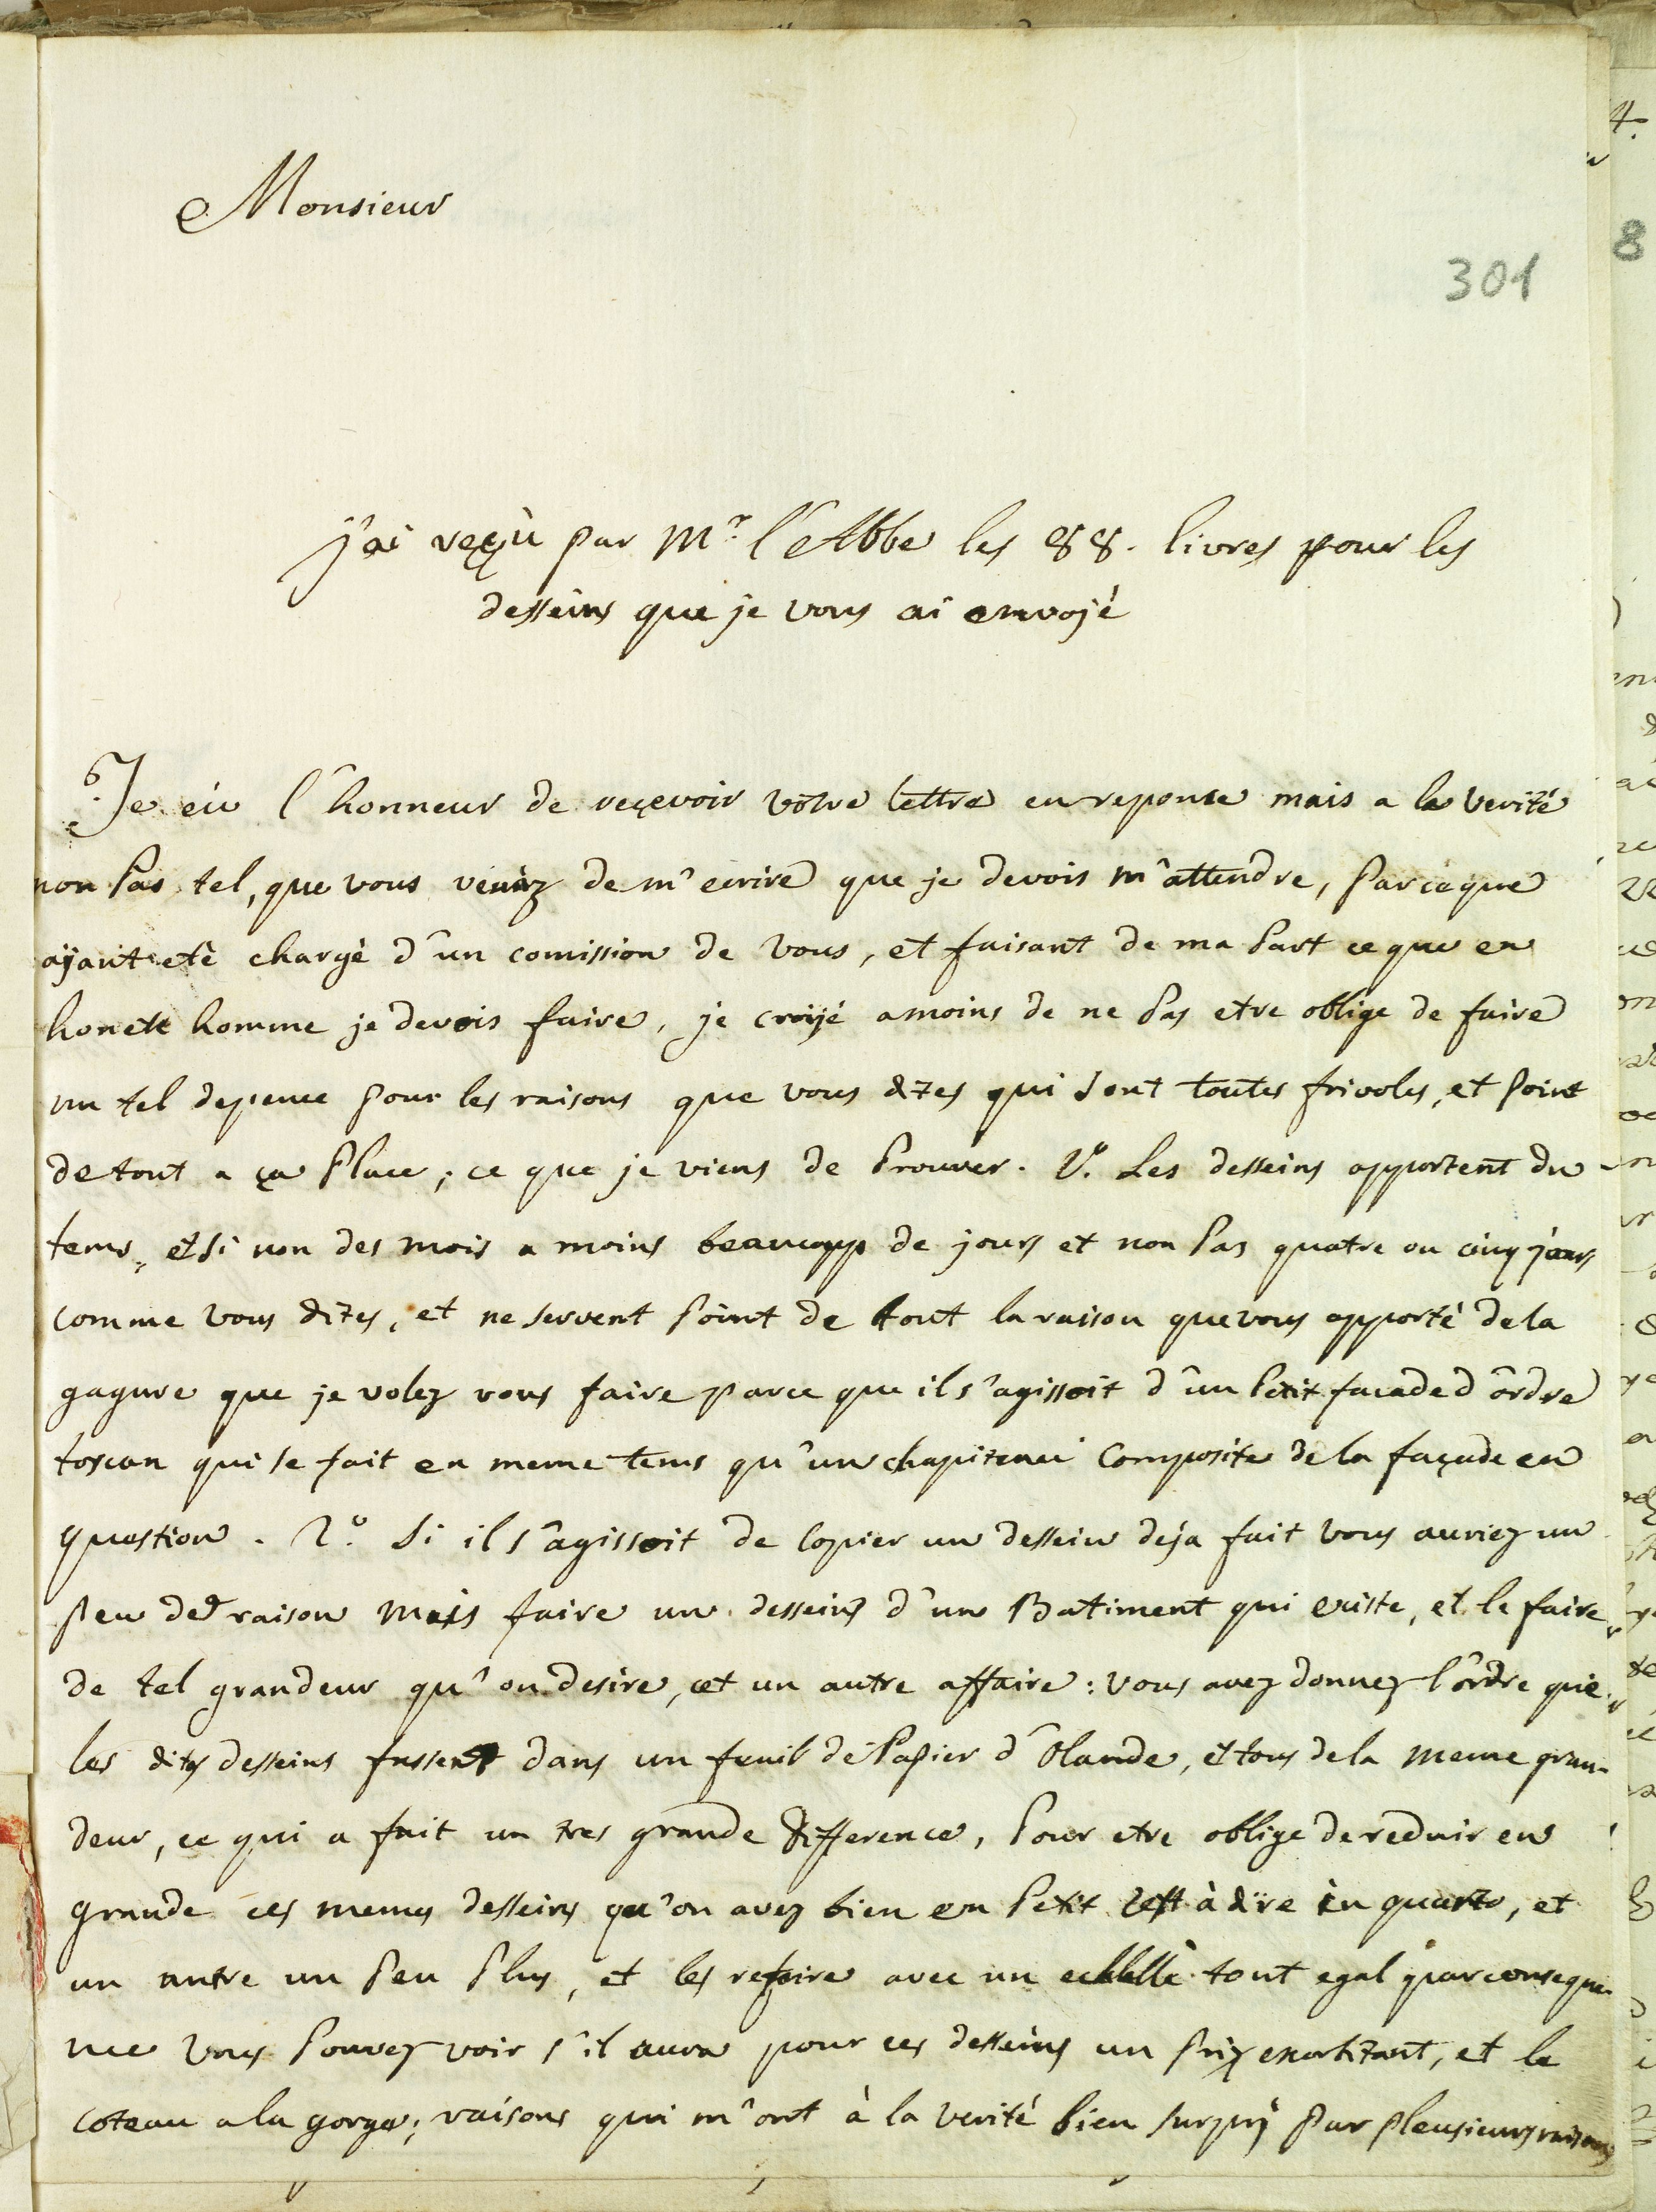 Monsieur
301
j'ai reçù par Mr. l'Abbe les 88. livres pour les
desseins que je vous ai envojé
Je eu l'honneur de reçevoir vôtre lettre en reponse mais a la verité
non pas tel, que vous venéz de m'ecrire que je devois m'attendre, parceque
aÿant etè chargè d'un comission de vous, et faisant de ma part ce que en
honete homme je devois faire, je croijé amoins de ne pas etre oblige de faire
un tel depence pour les raisons que vous dites qui sont toutes frivoles, et point
de tout a ça place; ce que je viens de prouver. 1º. Les desseins apportent du
tems, et si non des mois a moins beaucoup de jours et non pas quatre ou cinq jours
comme vous dites, et ne servent point de tout la raison que vous apporté de la
gagure que je volez vous faire parce que il s'agissoit d'un petit facade d'ordre
toscan qui se fait en meme tems qu'un chapiteau composite de la façade en
question. 2º. Si il s'agissoit de copier un dessein deja fait vous auriez un
peu de raison mais faire un desseins d'un Batiment qui existe, et le faire
de tel grandeur qu'on desire, cet un autre affaire: vous avez donnez l'ordre que
les dits desseins fussent dans un feuil de papier d'Olande, et tous de la meme gran-
deur, ce qui a fait un tres grande difference, pour etre oblige de reduir en
grande ces memes desseins qu'on avez bien en petit c'est à dire in quarto, et
un autre un peu plus, et les refaire avec un echelle tout egal par conseque-
nce vous pouvez voir s'il aura pour ces desseins un prix exorbitant, et le
coteau a la gorge; raisons qui m'ont à la verité bien surpri par pleusieurs raisons